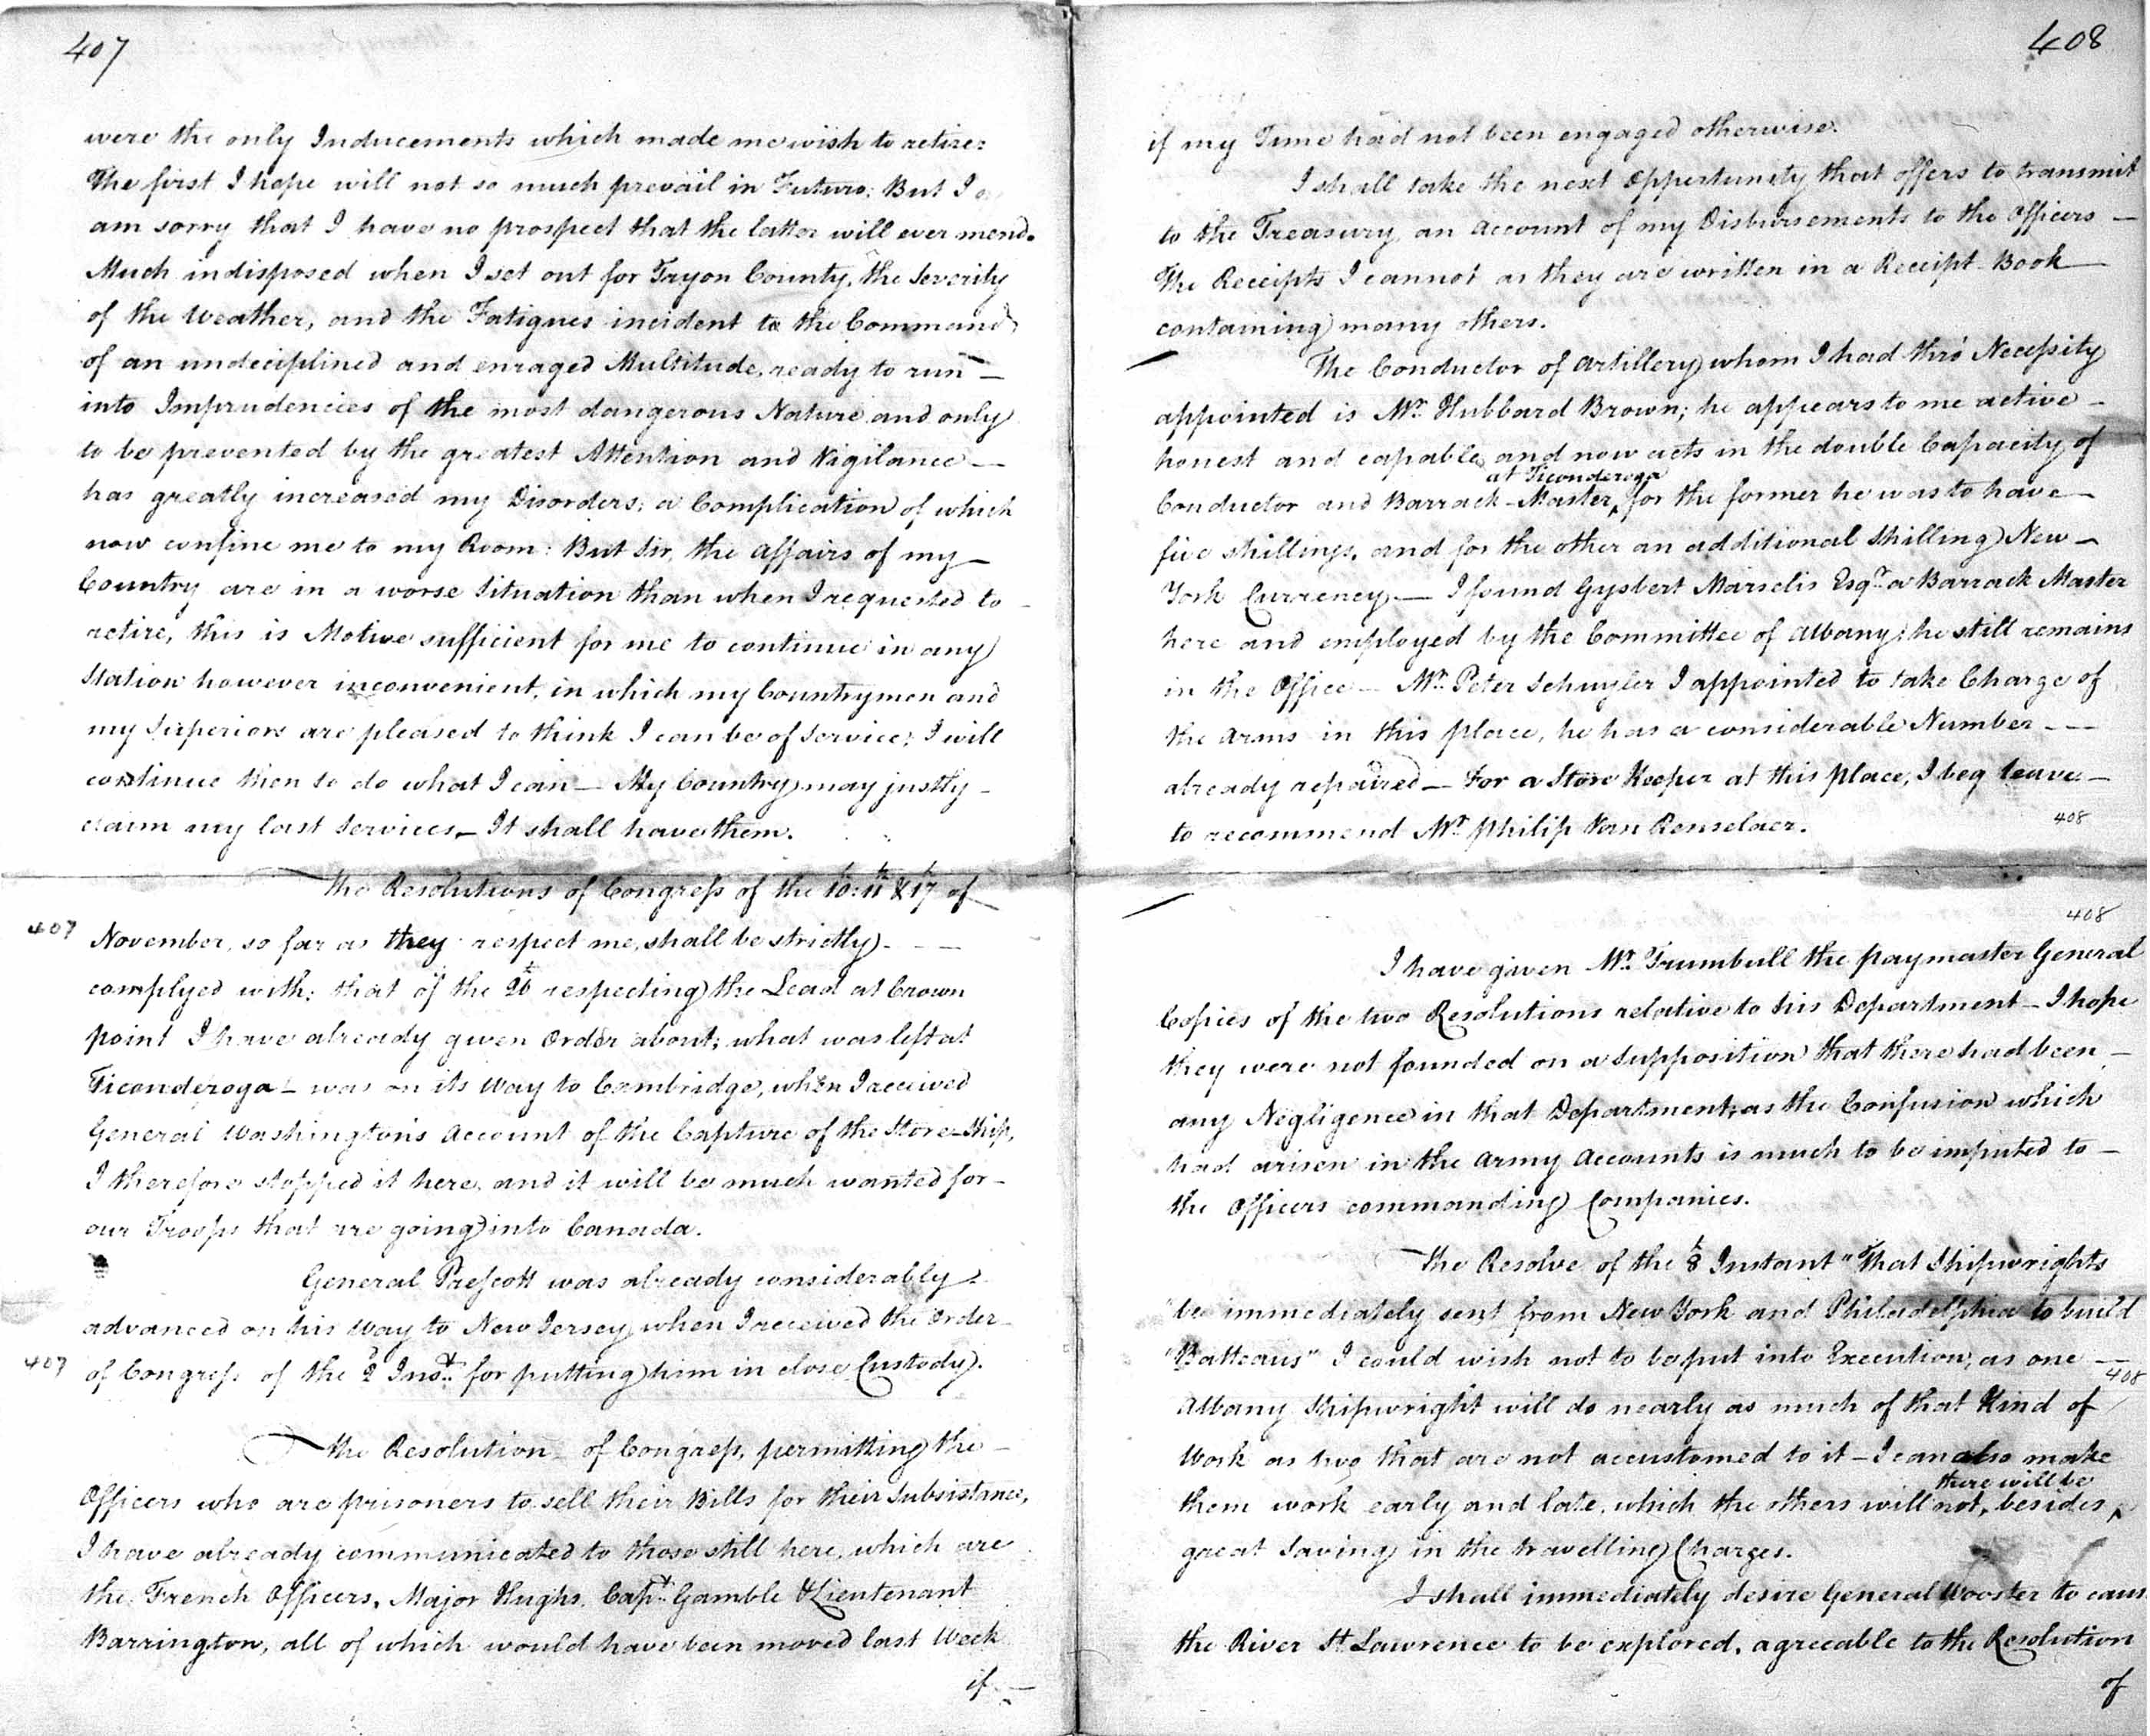 407
were the only Inducements which made me wish to retire:
The first I hope will not so much prevail in Future: But I
am sorry that I have no prospect that the latter will ever mend.
Much indisposed when I set out for Tryon County, the Severity
of the Weather, and the Fatigues incident to the Command
of an undeciplined and enraged Multitude, ready to run —
into Imprudencies of the most dangerous Nature and only
to be prevented by the greatest Attention and Vigilance —
has greatly increased my Disorders; a Complication of which
now confine me to my Room: But Sir, the Affairs of my —
Country are in a worse Situation than when I requested to
retire, this is Motive sufficient for me to continue in any
Station however inconvenient, in which my Countrymen and
my Superiors are pleased to think I can be of Service; I will
continue then to do what I can — My Country may justly —
claim my last Services — It shall have them.
The Resolutions of Congress of the 10th: 11th & 17th of
407
November, so far as they respect me, shall be strictly - - -
complyed with; that of the 26th respecting the Lead at Crown
point I have already given Order about; what was left at
Ticonderoga — was on its Way to Cambridge, when I received
General Washington's Account of the Capture of the Store-Ship,
I therefore stopped it here, and it will be much wanted for —
our Troops that are going into Canada.
General Prescott was already considerably
advanced on his Way to New Jersey when I received the Order
407
of Congress of the 2d Inst. for putting him in close Custody.
The Resolution of Congress, permitting the —
Officers who are prisoners to sell their Bills for their Subsistance,
I have already communicated to those still here, which are
the French Officers, Major Hughs, Capt. Gamble & Lieutenant
Barrington, all of which would have been moved last Week
if —
408
if my Time had not been engaged otherwise.
I shall take the next Oppertunity that offers to transmit
to the Treasury, an Account of my Disbursements to the Officers —
The Receipts I cannot as they are written in a Receipt-Book
containing many others.
The Conductor of Artillery whom I had thro' Necessity
appointed is Mr. Hubbard Brown; he appears to me active —
honest and capable, and now acts in the double Capacity of
at Ticonderoga
Conductor and Barrack-Master, for the former he was to have —
five shillings, and for the other an additional Shilling New —
York Currency — I found Gysbert Marselis Esqr. a Barrack Master
here and employed by the Committee of Albany; he still remains
in the Office — Mr. Peter Schuyler I appointed to take Charge of
the Arms in this place, he has a considerable Number - - -
already repaired — For a Store Keeper at this place, I beg leave —
to recommend Mr. Philip Van Renselaer.
408
408
I have given Mr. Trumbull the paymaster General
Copies of the two Resolutions relative to his Department — I hope
they were not founded on a Supposition that there had been —
any Negligence in that Department; as the Confusion which
had arisen in the Army Accounts is much to be imputed to —
the Officers commanding Companies.
The Resolve of the 8th Instant "That Shipwrights
"be immediately sent from New York and Philadelphia to build
"Batteaus" I could wish not to be put into Execution; as one —
408
Albany Shipwright will do nearly as much of that Kind of
Work as two that are not accustomed to it — I can also make
there will be
them work early and late, which the others will not, besides,
great Saving in the travelling Charges.
I shall immediately desire General Wooster to caus
the River St. Lawrence to be explored, agreeable to the Resolution
of